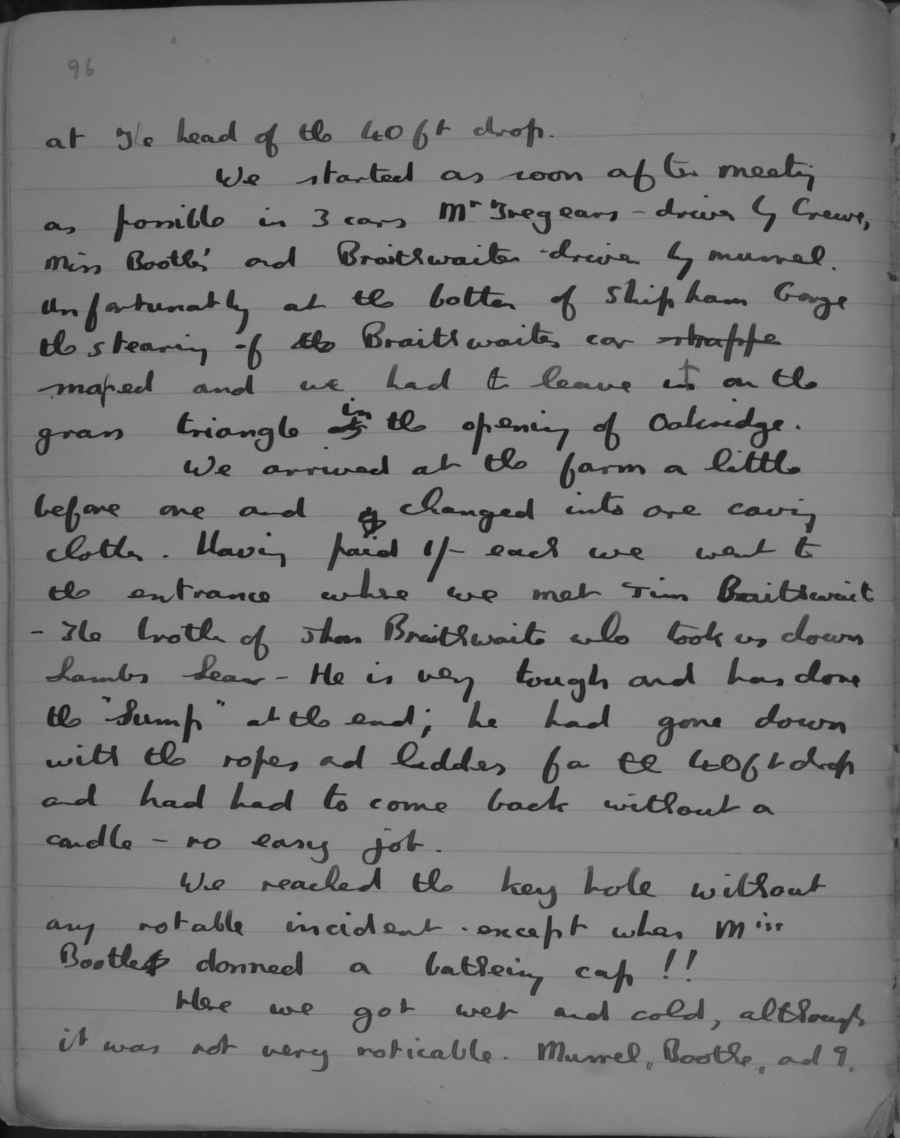 96
at the head of the 40 ft drop.
We started as soon after meeting
as possible in 3 cars Mr Tregears - driven by Crewe,
Miss Booths' and Braithwaites - driven by Murrel.
Unfortunatly at the bottem of Shipham Gorge
the stearing of the Braithwaites car strappe
snaped and we had to leave it on the
grass triangle in the opening of Oakridge.
We arrived at the farm a little
before one and changed into are caving
clothes. Having paid 1/- each we went to
the entrance where we met Tim Braithwait
- The brother of Braithwaite who took us down
Lambs Lear - He is very tough and has done
the "Sump" at the end; he had gone down
with the ropes and ladders for the 40 ft drop
and had had to come back without a
candle - no easy job.
We reached the key hole without
any notable incident - except when Miss
Boothe donned a batheing cap !!
Here we got wet and cold, although
it was not very noticable. Murrel, Boothe, and I.